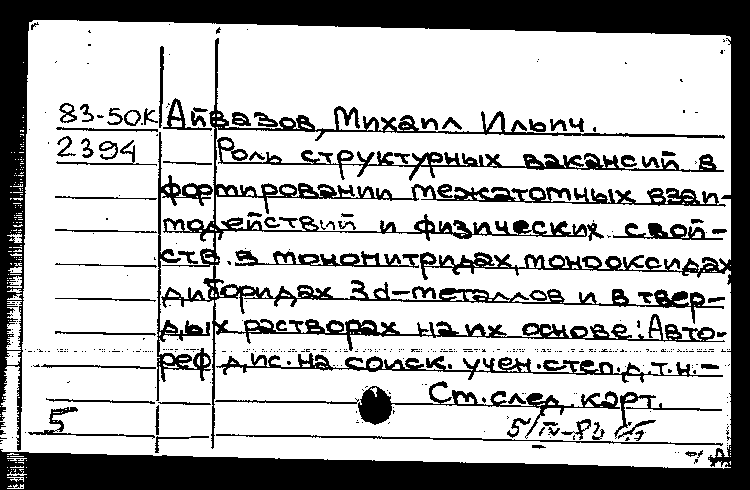 83-50К Айвазов, Михаил Ильич.
2394 Роль структурных вакансий в
формировании межатомных взаи-
модействий и физических свой-
ств в мононитридах, монооксидах,
диборидах 3d-металлов и в твер-
дых растворах на их основе: Авто-
реф. дис. на соиск. учен. степ. д.т.н.-
Ст. след. карт.
5 5/IV-83